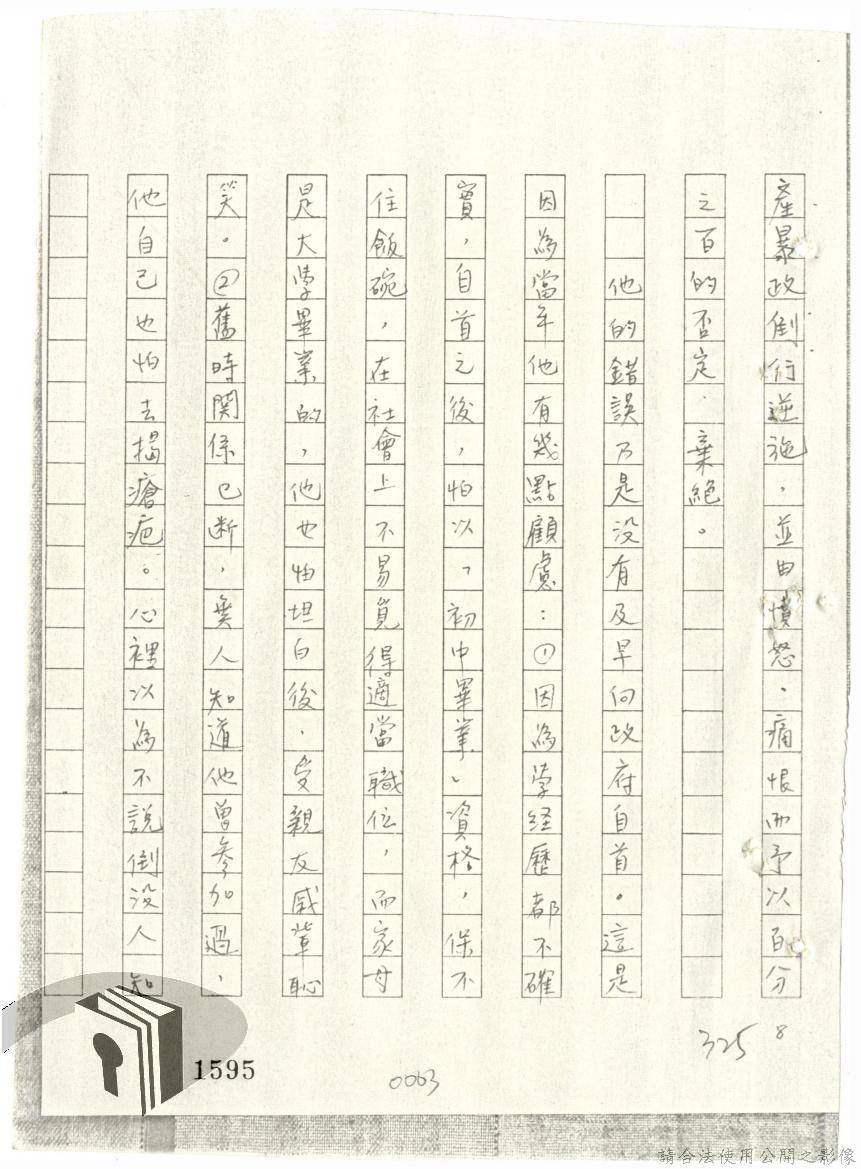 產暴政倒行逆施，並由憤怒、痛恨而予以百分
之百的否定、棄絕。
他的錯誤乃是没有及早向政府自首。這是
因為當年他有幾點顧慮：①因為学経歷都不確
實，自首之後，怕以「初中畢業」資格，保不
住飯碗，在社會上不易覓得適當職位，而家母
是大學畢業的，他也怕坦白後，受親友戚輩恥
笑。②舊時関係已断，無人知道他曾参加過，
他自己也怕去揭瘡疤。心裡以為不說倒没人知
325 8
0063
1595
請合法使用公開之影像